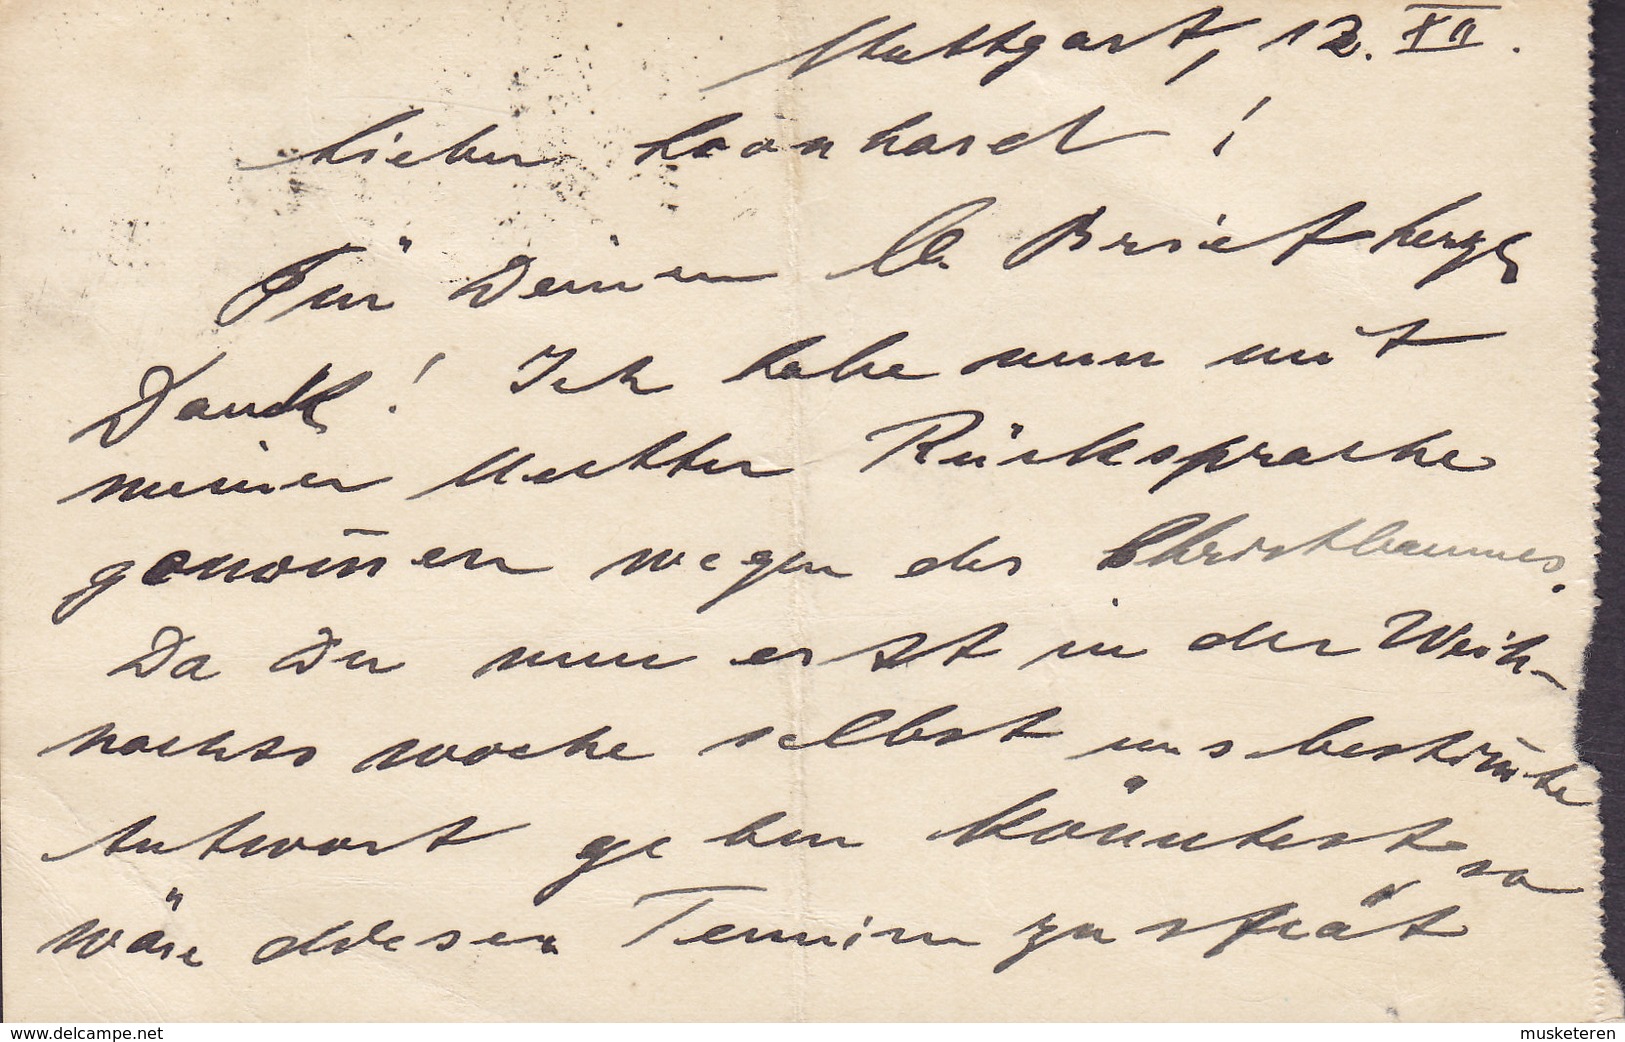 Stuttgart, 12. XII.
Lieber Leonhard!
Für Deinen lb. Brief herzl.
Dank! Ich habe nun mit
meiner Mutter Rücksprache
genom̄en wegen des Christbaumes.
Da Du nun erst in der Weih-
nachtswoche selbst uns bestim̄te
Antwort geben könntest, so
wäre dieser Termin zu spät
www.delcampe.net
musketeren